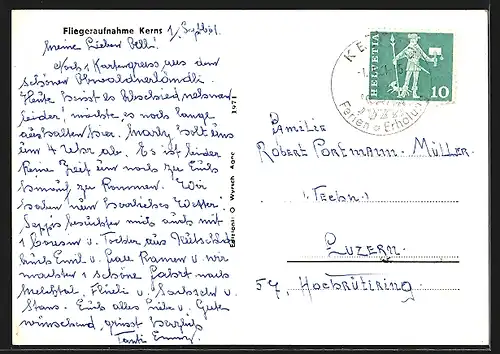 Fliegeraufnahme Kerns
1/Sept 61.
Meine Lieben Belli!
Noch 1 Kartengruss aus dem
schönen Obwaldnerländli.
Heute heisst es Abschied nehmen
leider! möchte es noch lange
aushalten hier. holt uns
um 4 Uhr ab. Es ist leider
keine Zeit um noch zu Euch
zu kommen. Wir
haben nun herrliches Wetter!
Seppis besuchten mich auch mit
1 Cousin u. Tochter aus
auch Emil u. kamen u. wir
machten 1 schöne Fahrt nach
Melchtal, Flüeli u. Sachseln u.
Stans. Euch alles Liebe u. Gute
wünschend, grüsst herzlich
Tanti Emmy
Edition: O. Wyrsch, Agno 197
KE
Ferien u Erholu
HELVETIA
10
Familie
Robert Portmann-Müller
Techn.
Luzern.
57, Hochrütiring